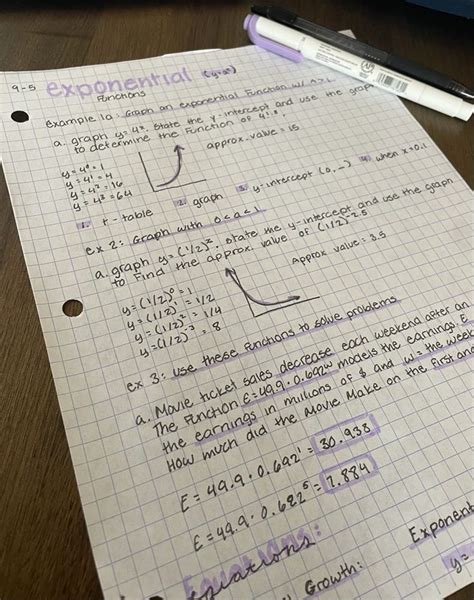 9-5 exponential (y=aˣ)
Functions
Example 1a: Graph an exponential Function w/ a>1
a. graph y=4ˣ. State the y-intercept and use the graph
to determine the Function of
y=4⁰=1
y=4¹=4
y=4²=16
y=4³=64
approx. value = 15
1. t-table 2. graph 3. y-intercept (0, 4. when x=0,1
ex 2: Graph with 0<a<1
a. graph y=(1/2)ˣ. State the y-intercept and use the graph
to Find the approx. value of (1/2)
y=(1/2)⁰=1
y=(1/2)¹=1/2
y=(1/2)²=1/4
y=(1/2)⁻³=8
Approx value: 3.5
ex 3: use these Functions to solve problems
a. Movie ticket sales decrease each weekend after an
The Function E=49.9·0.692w models the earnings. E
the earnings in millions of $ and w= the week
How much did the movie Make on the first and
E=49.9·0.692¹= 30.938
E=49.9·0.692⁵= 7.884
Equations:
Growth:
Exponent
y=